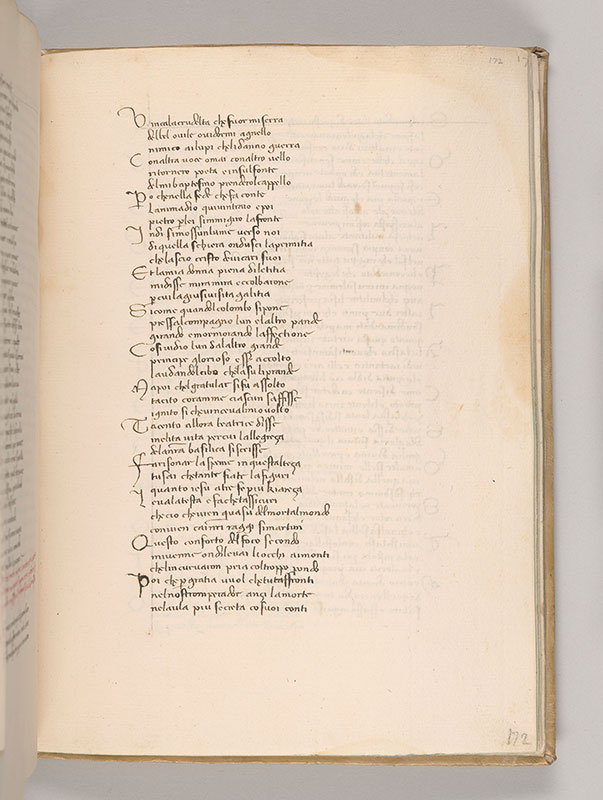 172
Vincala crudelta che fuor mi serra
del bel ovile ovidormi agnello
nimico ai lupi che li danno guerra
Con altra voce omai con altro vello
ritornero poeta e in sul fonte
del mi baptesmo prendero l cappello
Po che nella fede che fa conte
Lanima a dio quivi ntraio e poi
pietro p lei si mi giro la fronte
Indi si mosse un lume verso noi
di quella schiera ondusci la primitia
che lascio cristo de vicari suoi
Et la mia donna piena di letitia
mi disse mira mira ecco l barone
p cui la giu si visita galitia
Si come quando l colombo si pone
presso al compagno lun el altro pande
girando e mormorando l affectione
Cosi vidio lun dal altro grande
principe glorioso esser accolto
laudando l cibo che la su li prande
Ma poi che l gratular si fu assolto
tacito coram me ciascun saffisse
ignito si che vinceva l mio volto
Tacento allora beatrice disse
inclita vita per cui la llegreça
de la nostra basilica si scrisse
Fa risonar la speme in questa alteça
tu sai che tante fiate la figuri
quanto iesu a tre fe piu kiareça
Leva la testa e fa che t assicuri
che cio che vien qua su del mortal mondo
convien cai nostri raggi si maturi
Questo conforto del foco secondo
mi venne ondi levai li occhi ai monti
che l incurvaron pria col troppo pondo
Poi che p gratia vuol che tu t affronti
nel nostro mperadore ançi la morte
nel aula piu secreta co suoi conti
172